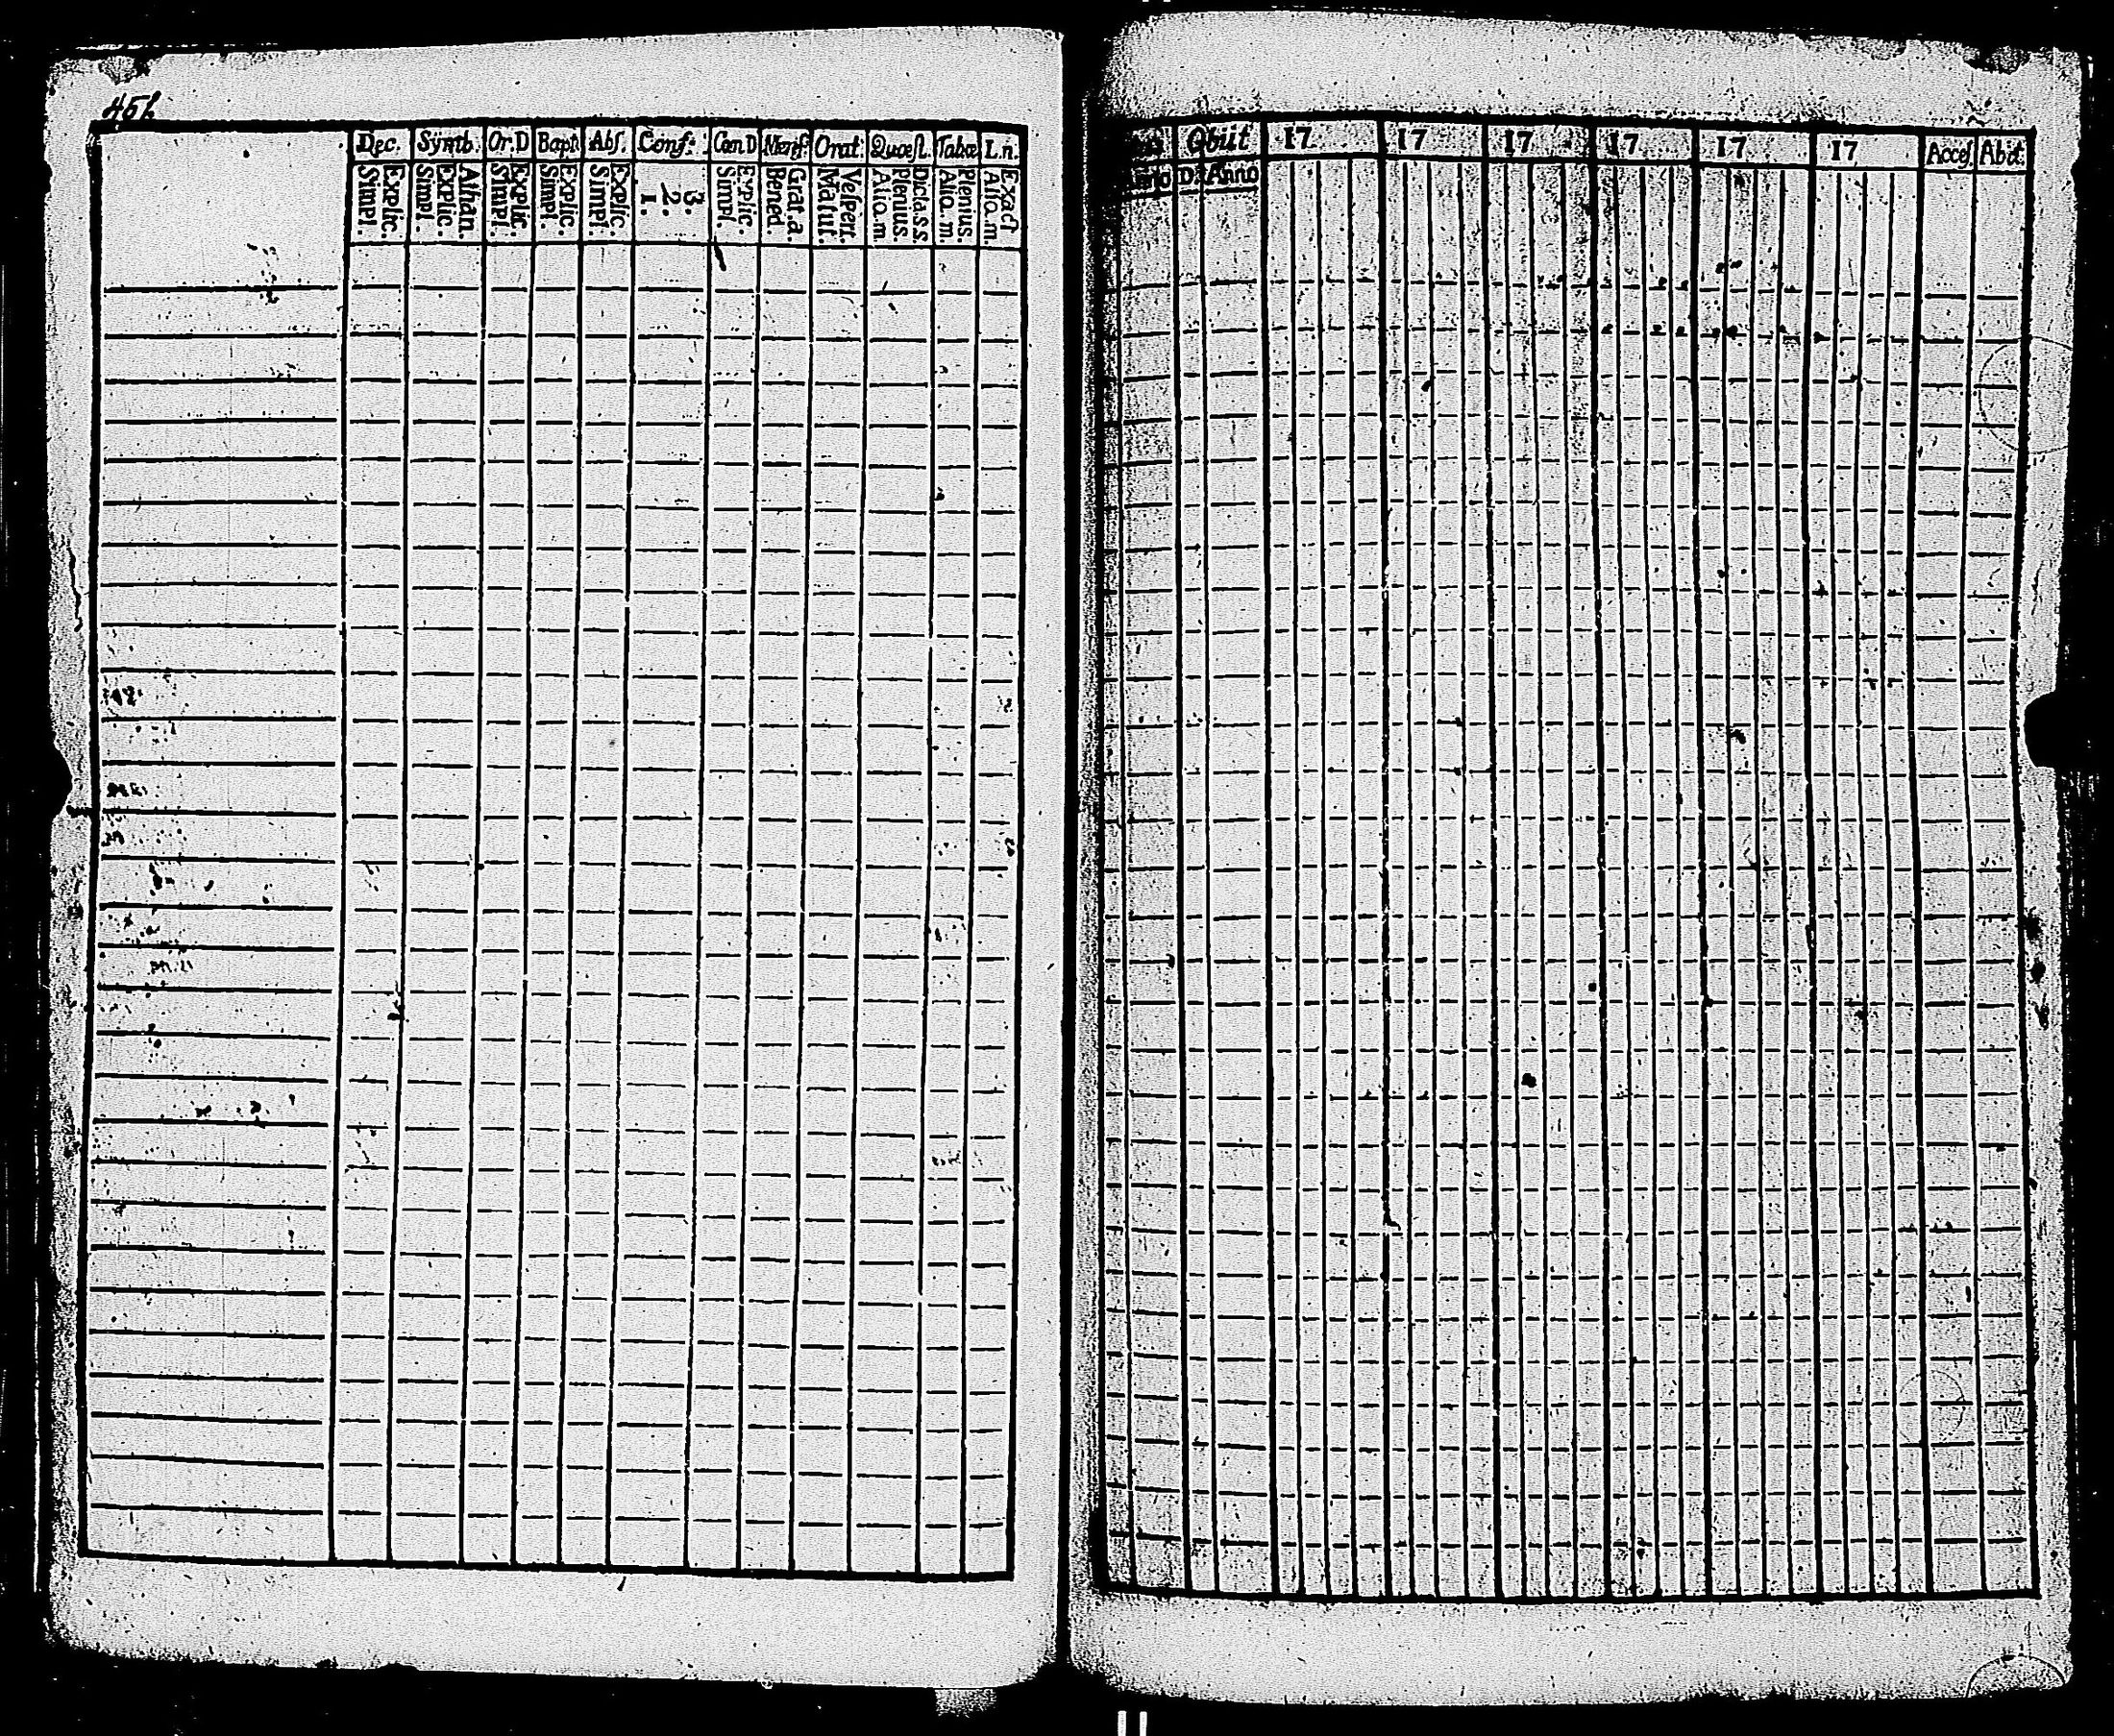 Dec. Symb. Or. D Bapt Abſ. Conf: Cœn D Menſ Orat. Quæſt. Tabœ L. n.
Explic. Simpl.
Athan. Explic. Simpl.
Explic. Simpl.
Explic. Simpl.
Explic. Simpl.
3. 2. 1.
Explic. Simpl.
Grat. a. Bened.
Veſpert. Matut.
Plenius. Aliq. m.
Plenius. Aliq. m.
Exact Aliq. m.
Obiit 17 17 17 17 17 17 Acceſ. Abit.
D. Anno